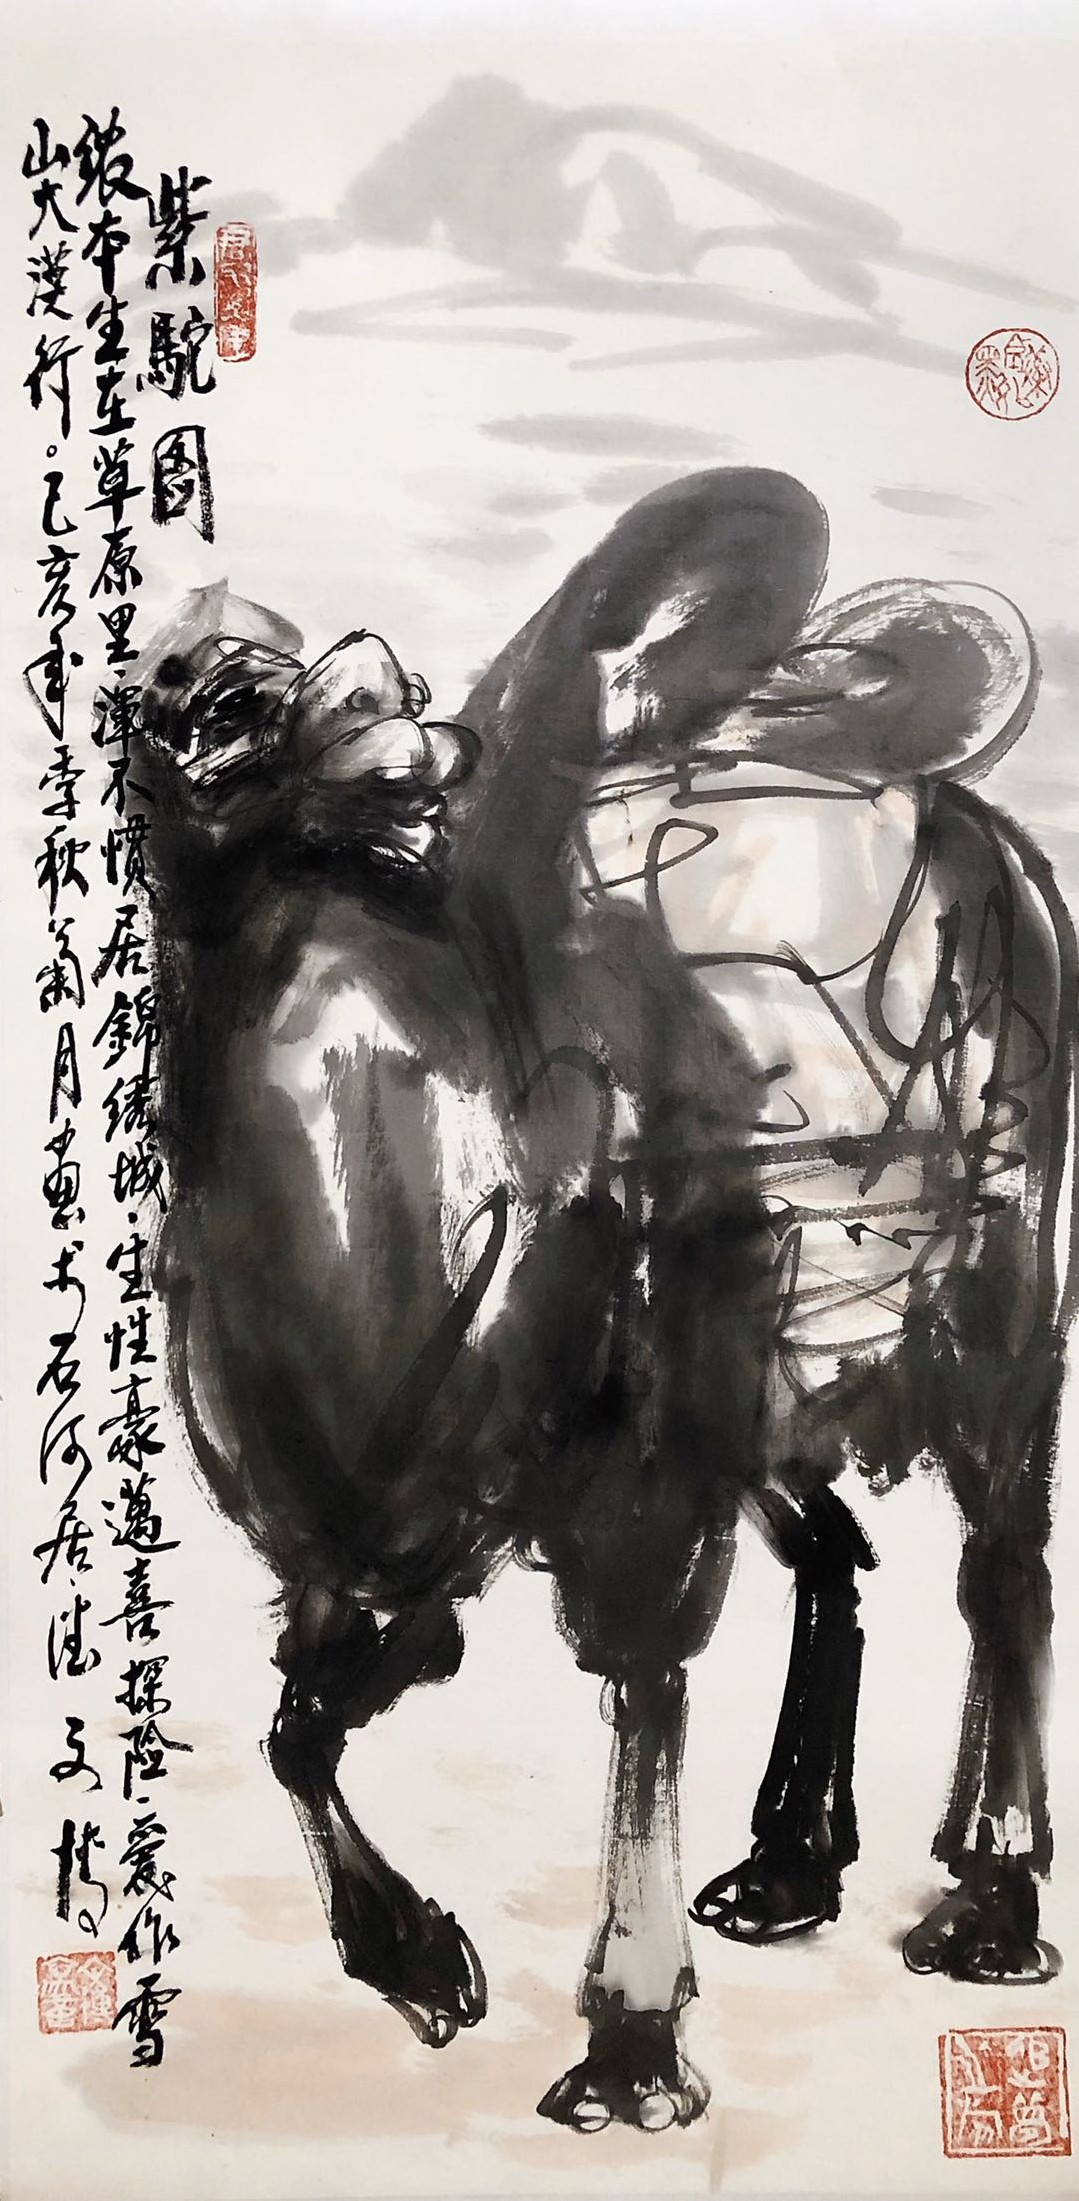 紫駝圖
儂本生在草原里、渾不慣居錦繡城、生性豪邁喜探險、愛作雪
山大漠行。己亥年季秋菊月畫於石河居、陸文博